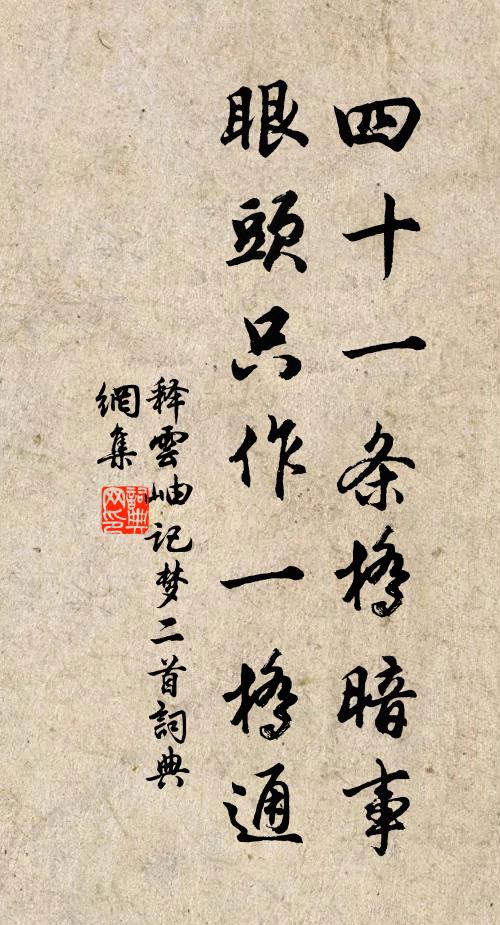 四十一条橋暗事
眼頭只作一橋通
释雲岫记梦二首詞典
網集
詞典
网印